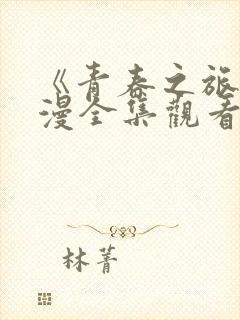 《青春之旅
漫全集觀看
林菁